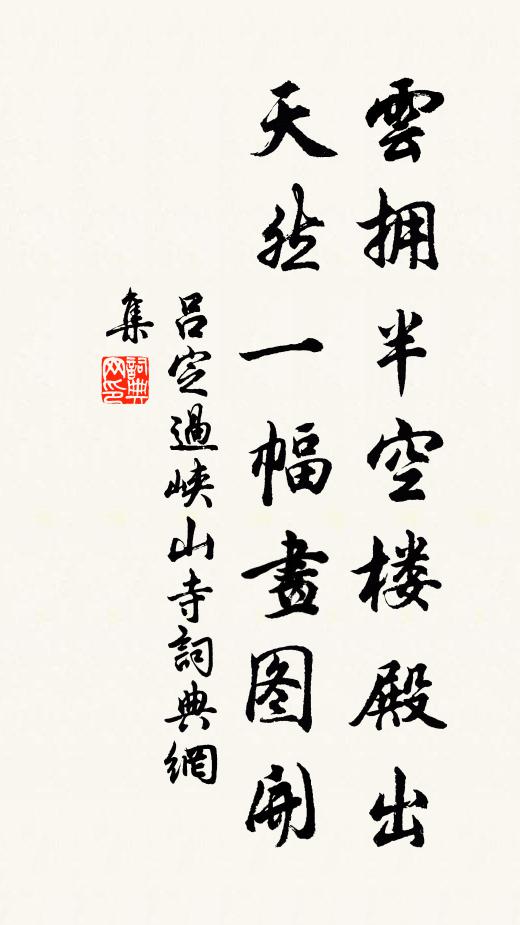 雲擁半空楼殿出
天然一幅畫图開
吕定過峡山寺詞典網
集
詞典
网印